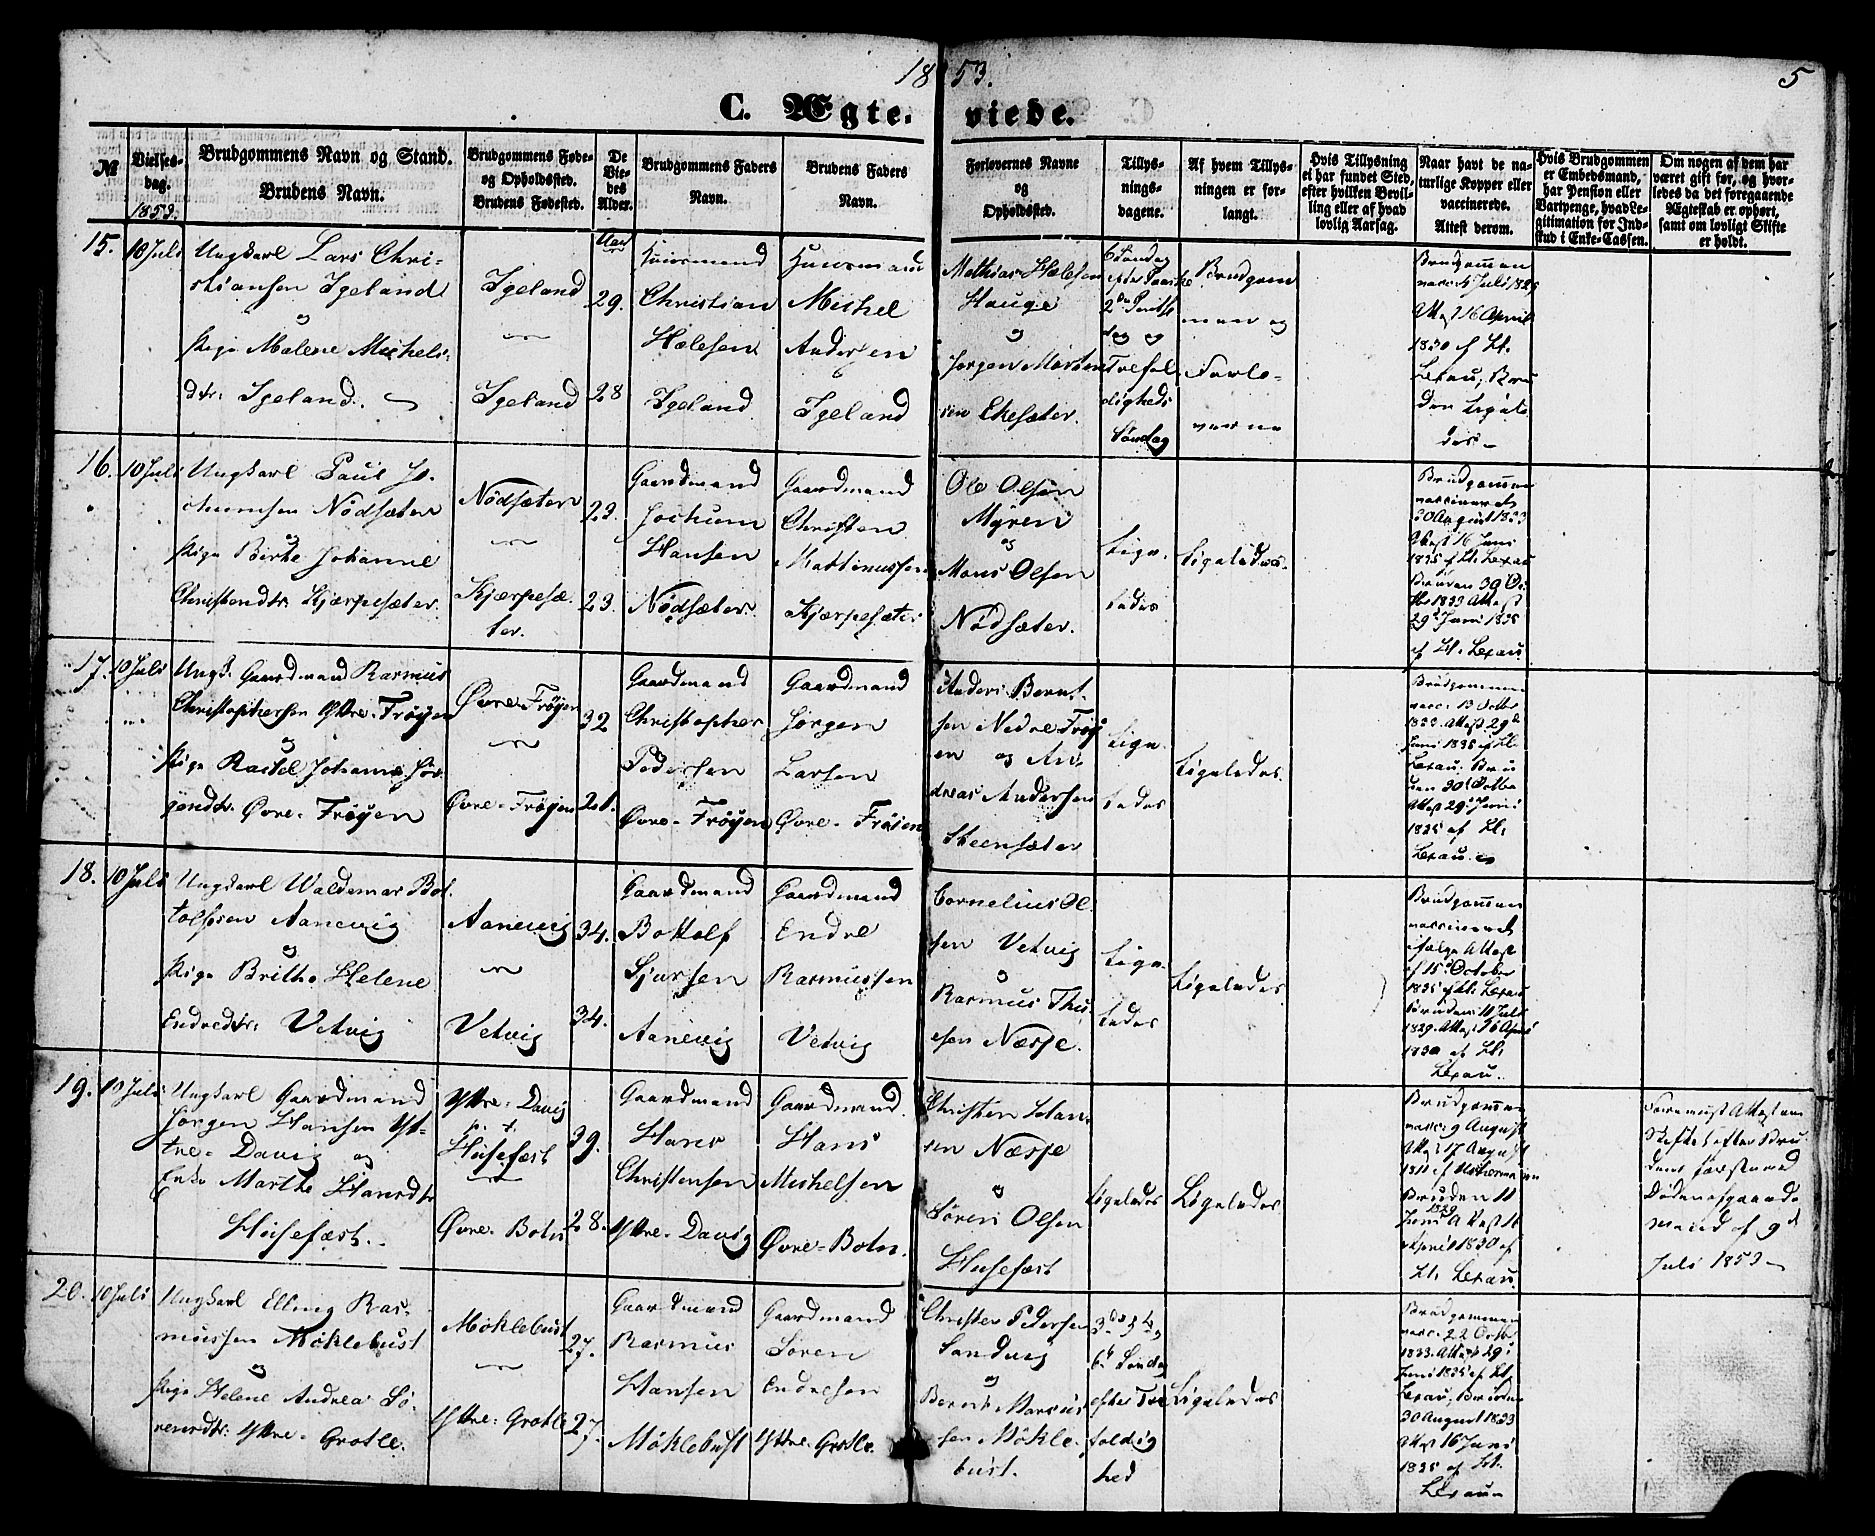 1853.
5
C. Ægte- viede.
№
Vielses-
dag.
1853.
Brudgommens Navn og Stand.
Brudens Navn.
Brudgommens Føde-
og Opholdssted.
Brudens Fødested.
De
Vie-
des
Alder.
Brudgommens Faders
Navn.
Brudens Faders
Navn.
Forlovernes Navne
og
Opholdssted.
Tillys-
nings-
dagene.
Af hvem Tillys-
ningen er for-
langt.
Hvis Tillysning
ei har fundet Sted,
efter hvilken Bevil-
ling eller af hvad
lovlig Aarsag.
Naar havt de na-
turlige Kopper eller
vaccinerede.
Attest derom.
Hvis Brudgommen
er Embedsmand,
har Pension eller
Vartpenge, hvad Le-
gitimation for Ind-
skud i Enke-Cassen.
Om nogen af dem har
været gift før, og hvor-
ledes da det foregaaende
Ægteskab er ophørt,
samt om lovligt Skifte
er holdt.
15.
10 Juli
Ungkarl Lars Chri-
stiansen Igeland
og
Pige Malene Michels-
dtr. Igeland.
Igeland
Igeland
Aar
29.
28
Huusmand
Christian
Halesen
Igeland
Huusmand
Michel
Andersen
Igeland
Mathias Halesen
Hauge
og
Jørgen Morten-
sen Ekesæter.
6 Søndag
efter Paaske
2den Pintse
dag og
Trefol-
digheds
Søndag
Brudgom
men og
Forlo-
verne
Brudgommen
vacc. 5 Juli 1829
Attest 16 April
1830 af Lt.
Lexau, Bru
den ligele
des
16.
10 Juli
Ungkarl Paul Jo-
chumsen Nødsæter
og
Pige Birthe Johanne
Christendtr. Kjærpesæter.
Nødsæter
Kjærpesæ-
ter.
23.
23.
Gaardmand
Jochum
Hansen
Nødsæter
Gaardmand
Christen
Mattinussen
Kjærpesæter
Ole Olsen
Myren
og
Mons Olsen
Nødsæter.
Lige-
ledes
Ligeledes.
Brudgommen
vaccineret
30 August 1833
Attest 16 Juni
1835 af Lt. Lexau
Bruden 30 Oc
tbr 1833 Attest
29d Juni 1835
af Lt. Lexau.
17.
10 Juli
Ungk. Gaardmand Rasmus
Christophersen Yttre-Frøyen
og
Pige Rachel Johanne Jør-
gendtr. Øvre-Frøyen
Øvre-Frøyen
Øvre-Frøyen
32
21.
Gaardmand
Christopher
Pedersen
Øvre-Frøyen
Gaardmand
Jørgen
Larsen
Øvre-Frøien
Anders Bernt-
sen Nedre Frøy
en og An-
dreas Andersen
Steensæter
Lige-
ledes
Ligeledes
Brudgommen
vacc. 13 Octbr
1833. Attest 29d
Juni 1835 af Lt.
Lexau. Bru
den 30 Octbr
Attest 29d Juni
1835 af Lt.
Lexau.
18.
10 Juli
Ungkarl Waldemar Bot-
tolfsen Aanevig
og
Pige Brithe Helene
Endredtr. Vetvig
Aanevig
Vetvig
34.
34.
Gaardmand
Bottolf
Sjursen
Aanevig
Gaardmand
Endre
Rasmussen
Vetvig
Cornelius Ol-
sen Vetvig
og
Rasmus Thu-
esen Næsje.
Lige-
ledes
Ligeledes
Brudgommen
vaccineret
ifølge Attest
af 15d October
1835 af Lt. Lexau
Bruden 11 Juli
1829. Attest 16 April
1830 af Lt.
Lexau.
19.
10 Juli
Ungkarl Gaardmand
Jørgen Hansen Yt-
tre-Davig og
Enke Marthe Hansdtr
Husefæst.
Yttre-Davig
p. t.
Husefæst
Øvre-Botn
39.
28.
Gaardmand
Hans
Christensen
Yttre-Davig
Gaardmand.
Hans
Michelsen
Øvre-Botn.
Christen Han-
sen Næsje
og
Søren Olsen
Husefæst
Ligeledes
Ligeledes
Brudgommen
vacc. 9 August
Attest 17 August
Bruden 11
Juni 1829 Attest 16
April 1830 af
Lt. Lexau.
Fremviist Attest om
Skifte efter Bru-
dens førstemed
Døden afgaaede
mand af 9d
Juli 1853
20.
10 Juli
Ungkarl Elling Ras-
mussen Møklebust
og
Pige Helene Andrea Sø-
rensdtr. Yttre-Grotle.
Møklebust
Yttre-Grotle
27.
27.
Gaardmand
Rasmus
Hansen
Møklebust
Gaardmand
Søren
Endresen
Yttre-Grotle.
Christen Pedersen
Sandvig
og
Berent Marcus
sen Møkle-
bust.
3die, 4de,
6te Søndag
efter Tre
foldig
hed
Ligeledes
Brudgommen
vacc. 22 Octbr
1833. Attest 29d
Juni 1835 af Lt.
Lexau, Bruden
30 August 1833
Attest 16 Juni
1835 af Lt.
Lexau